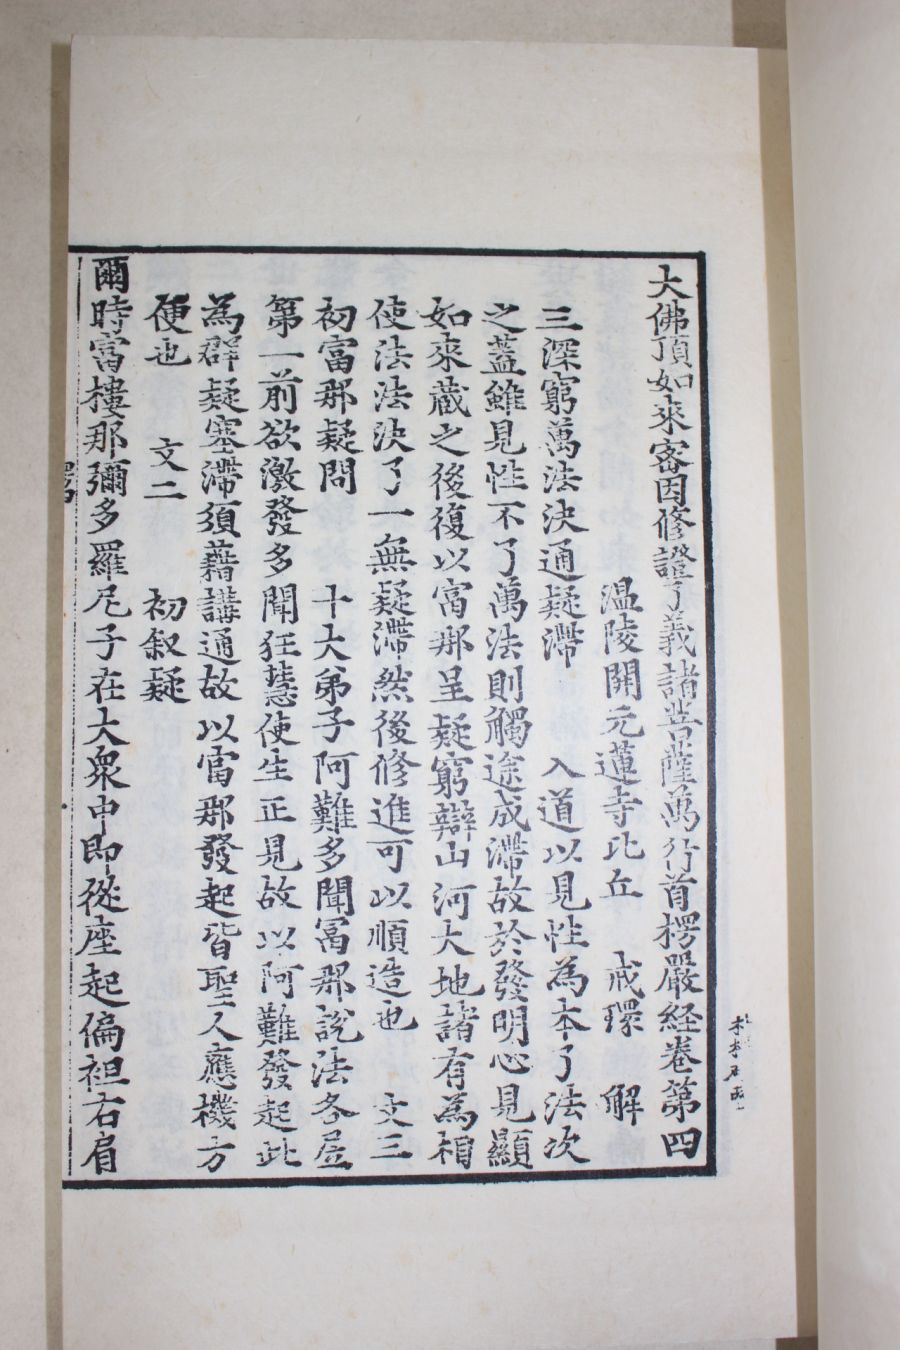 大佛頂如來密因修證了義諸菩薩萬行首楞嚴經卷第四
温陵開元蓮寺比丘 戒環 解
三深窮萬法決通疑滯 入道以見性為本了法次
之蓋雖見性不了萬法則觸途成滯故於發明心見顯
如來藏之後復以富那呈疑窮辯山河大地諸有為相
使法法決了一無疑滯然後修進可以順造也 文三
初富那疑問 十大弟子阿難多聞富那說法各居
第一前欲激發多聞狂慧使生正見故以阿難發起此
為群疑塞滯須藉講通故以富那發起皆聖人應機方
便也 文二 初叙疑
爾時富樓那彌多羅尼子在大衆中即從座起偏袒右肩